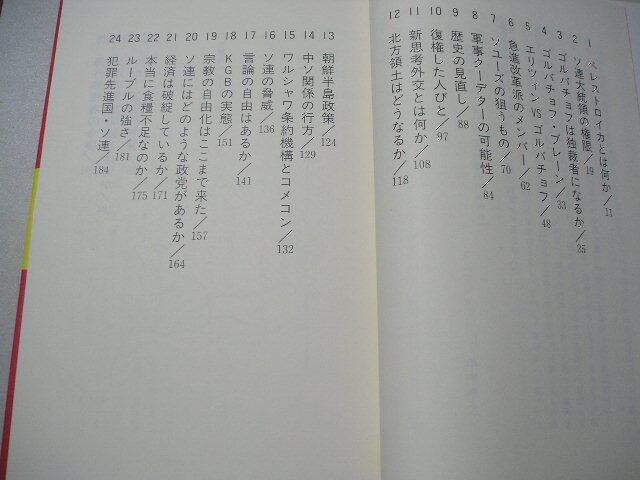 1 ペレストロイカとは何か/11
2 ソ連大統領の権限/19
3 ゴルバチョフは独裁者になるか/25
4 ゴルバチョフ・ブレーン/33
5 エリツィンVSゴルバチョフ/48
6 急進改革派のメンバー/62
7 ソユーズの狙うもの/70
8 軍事クーデターの可能性/84
9 歴史の見直し/88
10 復権した人びと/97
11 新思考外交とは何か/108
12 北方領土はどうなるか/118
13 朝鮮半島政策/124
14 中ソ関係の行方/129
15 ワルシャワ条約機構とコメコン/132
16 ソ連の脅威/136
17 言論の自由はあるか/141
18 KGBの実態/151
19 宗教の自由化はここまで来た/157
20 ソ連にはどのような政党があるか/164
21 経済は破綻しているか/171
22 本当に食糧不足なのか/175
23 ルーブルの強さ/181
24 犯罪先進国・ソ連/184